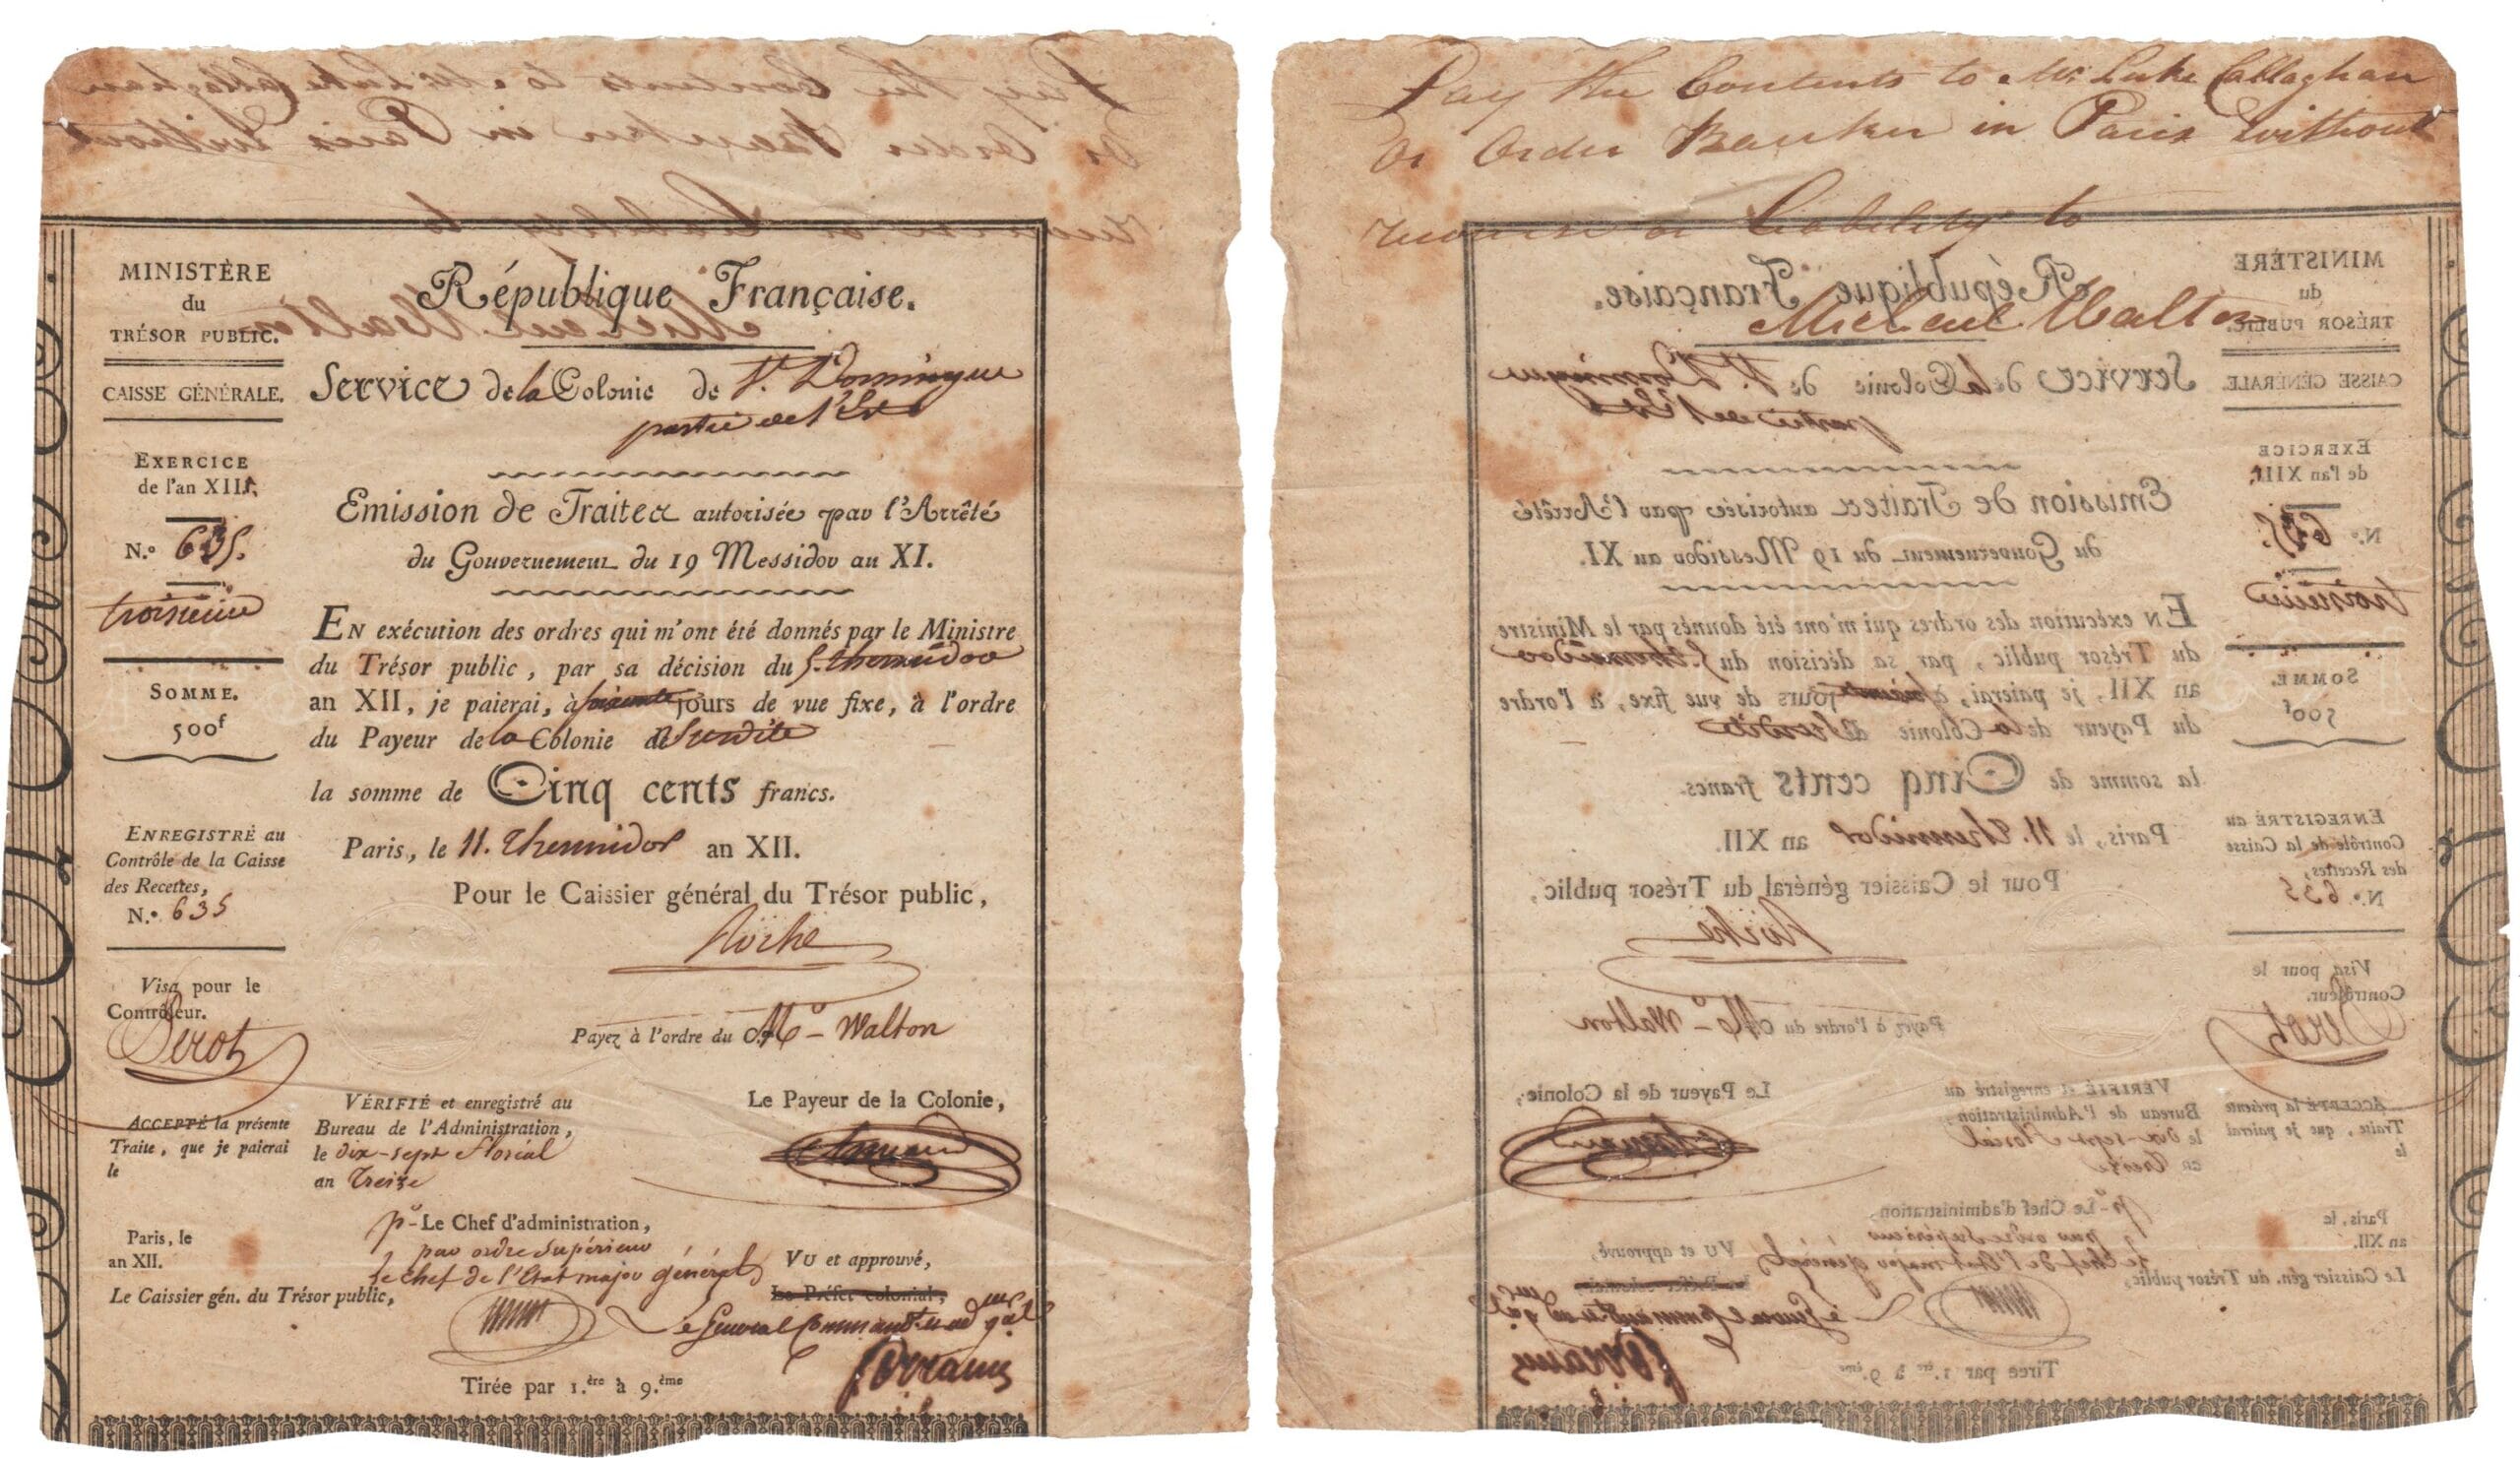 MINISTÈRE
du
TRÉSOR PUBLIC.
CAISSE GÉNÉRALE.
EXERCICE
de l'an XIII,
N.º 635.
troisieme
SOMME.
500f
ENREGISTRÉ au
Contrôle de la Caisse
des Recettes,
N.º 635
Visa pour le
Contrôleur.
Perot
ACCEPTÉ la présente
Traite, que je paierai
le
Paris, le
an XII.
Le Caissier gén. du Trésor public,
République Française.
Service de la Colonie de St. Domingue
partie de l'Est
Emission de Traites autorisée par l'Arrêté
du Gouvernement du 19 Messidor an XI.
EN exécution des ordres qui m'ont été donnés par le Ministre
du Trésor public, par sa décision du 5. thermidor
an XII, je paierai, à soixante jours de vue fixe, à l'ordre
du Payeur de la Colonie de Susdite
la somme de Cinq cents francs.
Paris, le 11. Thermidor an XII.
Pour le Caissier général du Trésor public,
Roche
Payez à l'ordre du Mr - Walton
Le Payeur de la Colonie,
VÉRIFIÉ et enregistré au
Bureau de l'Administration,
le dix-sept floréal
an treize
pr Le Chef d'administration,
par ordre supérieur
le chef de l'Etat major général
VU et approuvé,
Le Préfet colonial,
Le General Command.t
Ferrand
Tirée par 1.ère à 9.ème
Pay the Contents to Mr. Luke Callaghan
or Order Banker in Paris without
recourse or liability to
Michael Walton